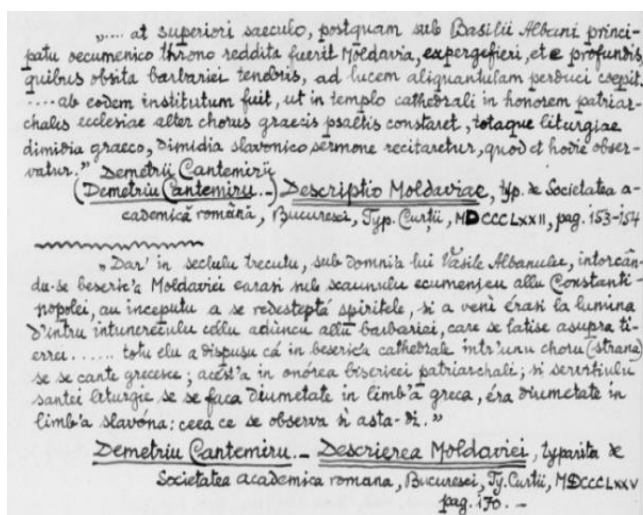 „.... at superiori saeculo, postquam sub Basilii Albani princi-
patu oecumenico throno reddita fuerit Moldavia, expergefieri, et e profundis,
quibus obsita barbariei tenebris, ad lucem aliquantulam perduci coepit.
.... ab eodem institutum fuit, ut in templo cathedrali in honorem patriar-
chalis ecclesiae alter chorus graecis psaltis constaret, totaque liturgiae
dimidia graeco, dimidia slavonico sermone recitaretur, quod et hodie obser-
vatur.” Demetrii Cantemirii
(Demetriu Cantemiru.-) Descriptio Moldaviae, typ. de Societatea a-
cademică română, Bucuresei, Typ. Curții, MDCCCLXXII, pag. 153-154
„Dar' in seclulu trecutu, sub domni'a lui Vasile Albanulu, intorcân-
du-se beseric'a Moldaviei earasi sub scaunulu ecumenicu allu Constanti-
nopolei, au inceputu a se redesteptá spiritele, si a vení érasi la lumina
d'intru intunereculu cellu adùncu allu barbariei, care se latise asupra ti-
erru ...... totu elu a dispusu cá in beseric'a cathedrale intr'unu choru (strana)
se se cante grecesce; acést'a in onórea bisericei patriarchali; si servitiulu
santei liturgie se se faca diumetate in limb'a greca, éra diumetate in
limb'a slavóna: ceea ce se observa si asta-di.”
Demetriu Cantemiru.- Descrierea Moldaviei, typarita de
Societatea academica romana, Bucuresei, Ty. Curtii, MDCCCLXXV
pag. 170.-